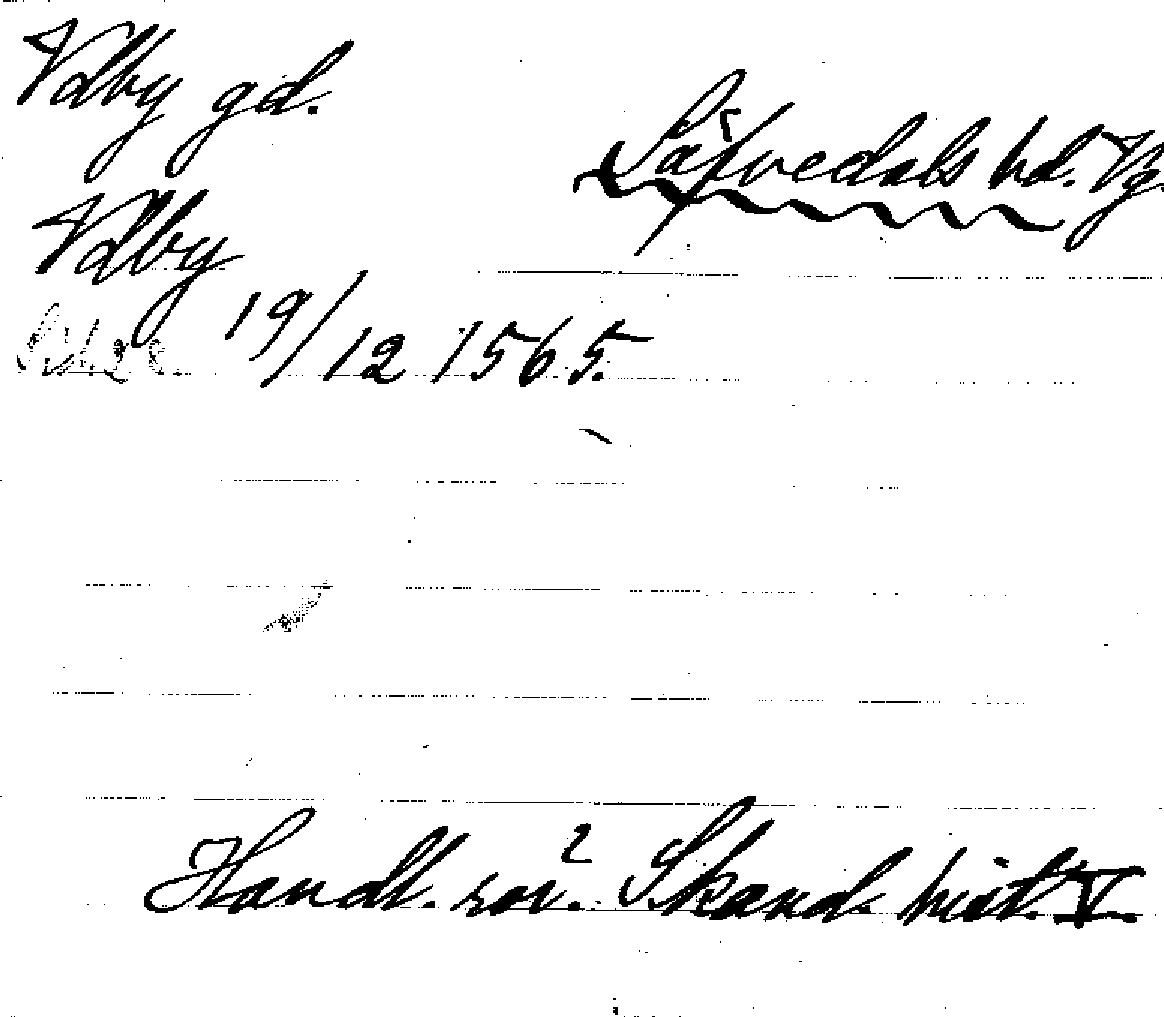 Valby gd.
Säfvedals hd. Vg.
Valby
19/12 1565.
Handl. rör. Skand. hist. V.